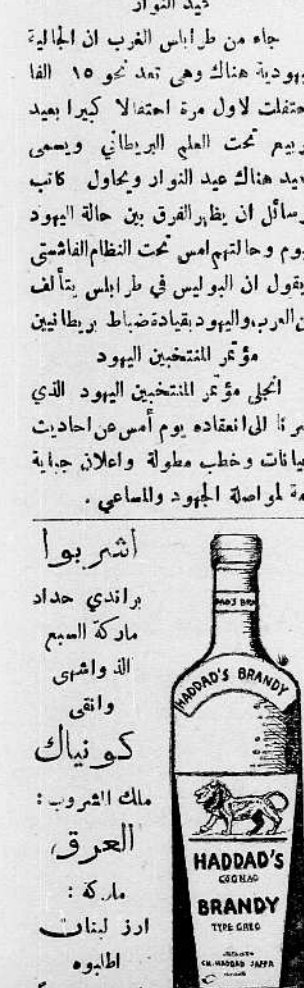 عيد النوار
جاء من طرابلس الغرب ان الجالية
يهودية هناك وهي تعد نحو ١٥ الفا
حتفلت لاول مرة احتفالا كبيرا بعيد
ربيع تحت العلم البريطاني ويسمى
عيد هناك عيد النوار ويحاول كاتب
رسائل ان يظهر الفرق بين حالة اليهود
يوم وحالتهم امس تحت النظام الفاشستي
يقول ان البوليس في طرابلس يتألف
ن العرب واليهود بقيادة ضباط بريطانيين
مؤتمر المنتخبين اليهود
انجلى مؤتمر المنتخبين اليهود الذي
شرنا الى انعقاده يوم أمس عن احاديث
بيانات وخطب مطولة واعلان جباية
مة لمواصلة الجهود والمساعي .
اشربوا
براندي حداد
ماركة السبع
الذ واشهى
وانقى
كونياك
ملك المشروب :
العرق
ماركة :
ارز لبنان
اطلبوه
HADDAD'S BRANDY
HADDAD'S
COGNAC
BRANDY
TYPE GREC
CH. HADDAD JAFFA